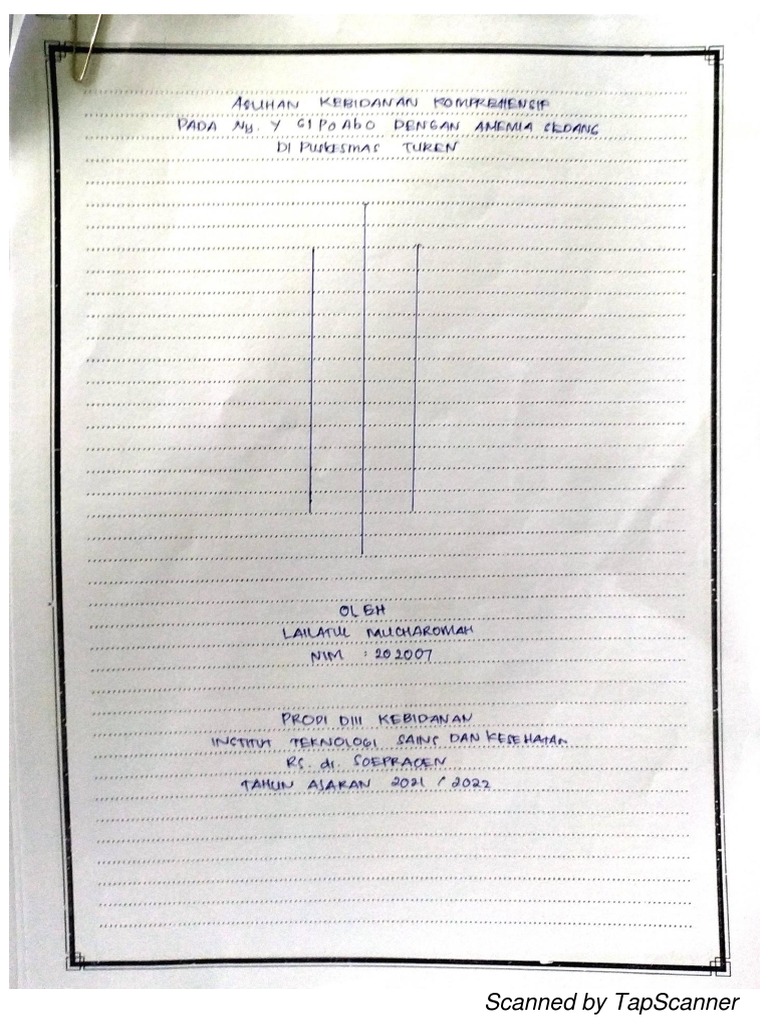 ASUHAN KEBIDANAN KOMPREHENSIF
PADA Ny. Y G1 P0 Ab0 DENGAN ANEMIA SEDANG
DI PUSKESMAS TUREN
OLEH
LAILATUL MUCHAROMAH
NIM : 202007
PRODI DIII KEBIDANAN
INSTITUT TEKNOLOGI SAINS DAN KESEHATAN
RS. dr. SOEPRAOEN
TAHUN AJARAN 2021 / 2022
Scanned by TapScanner